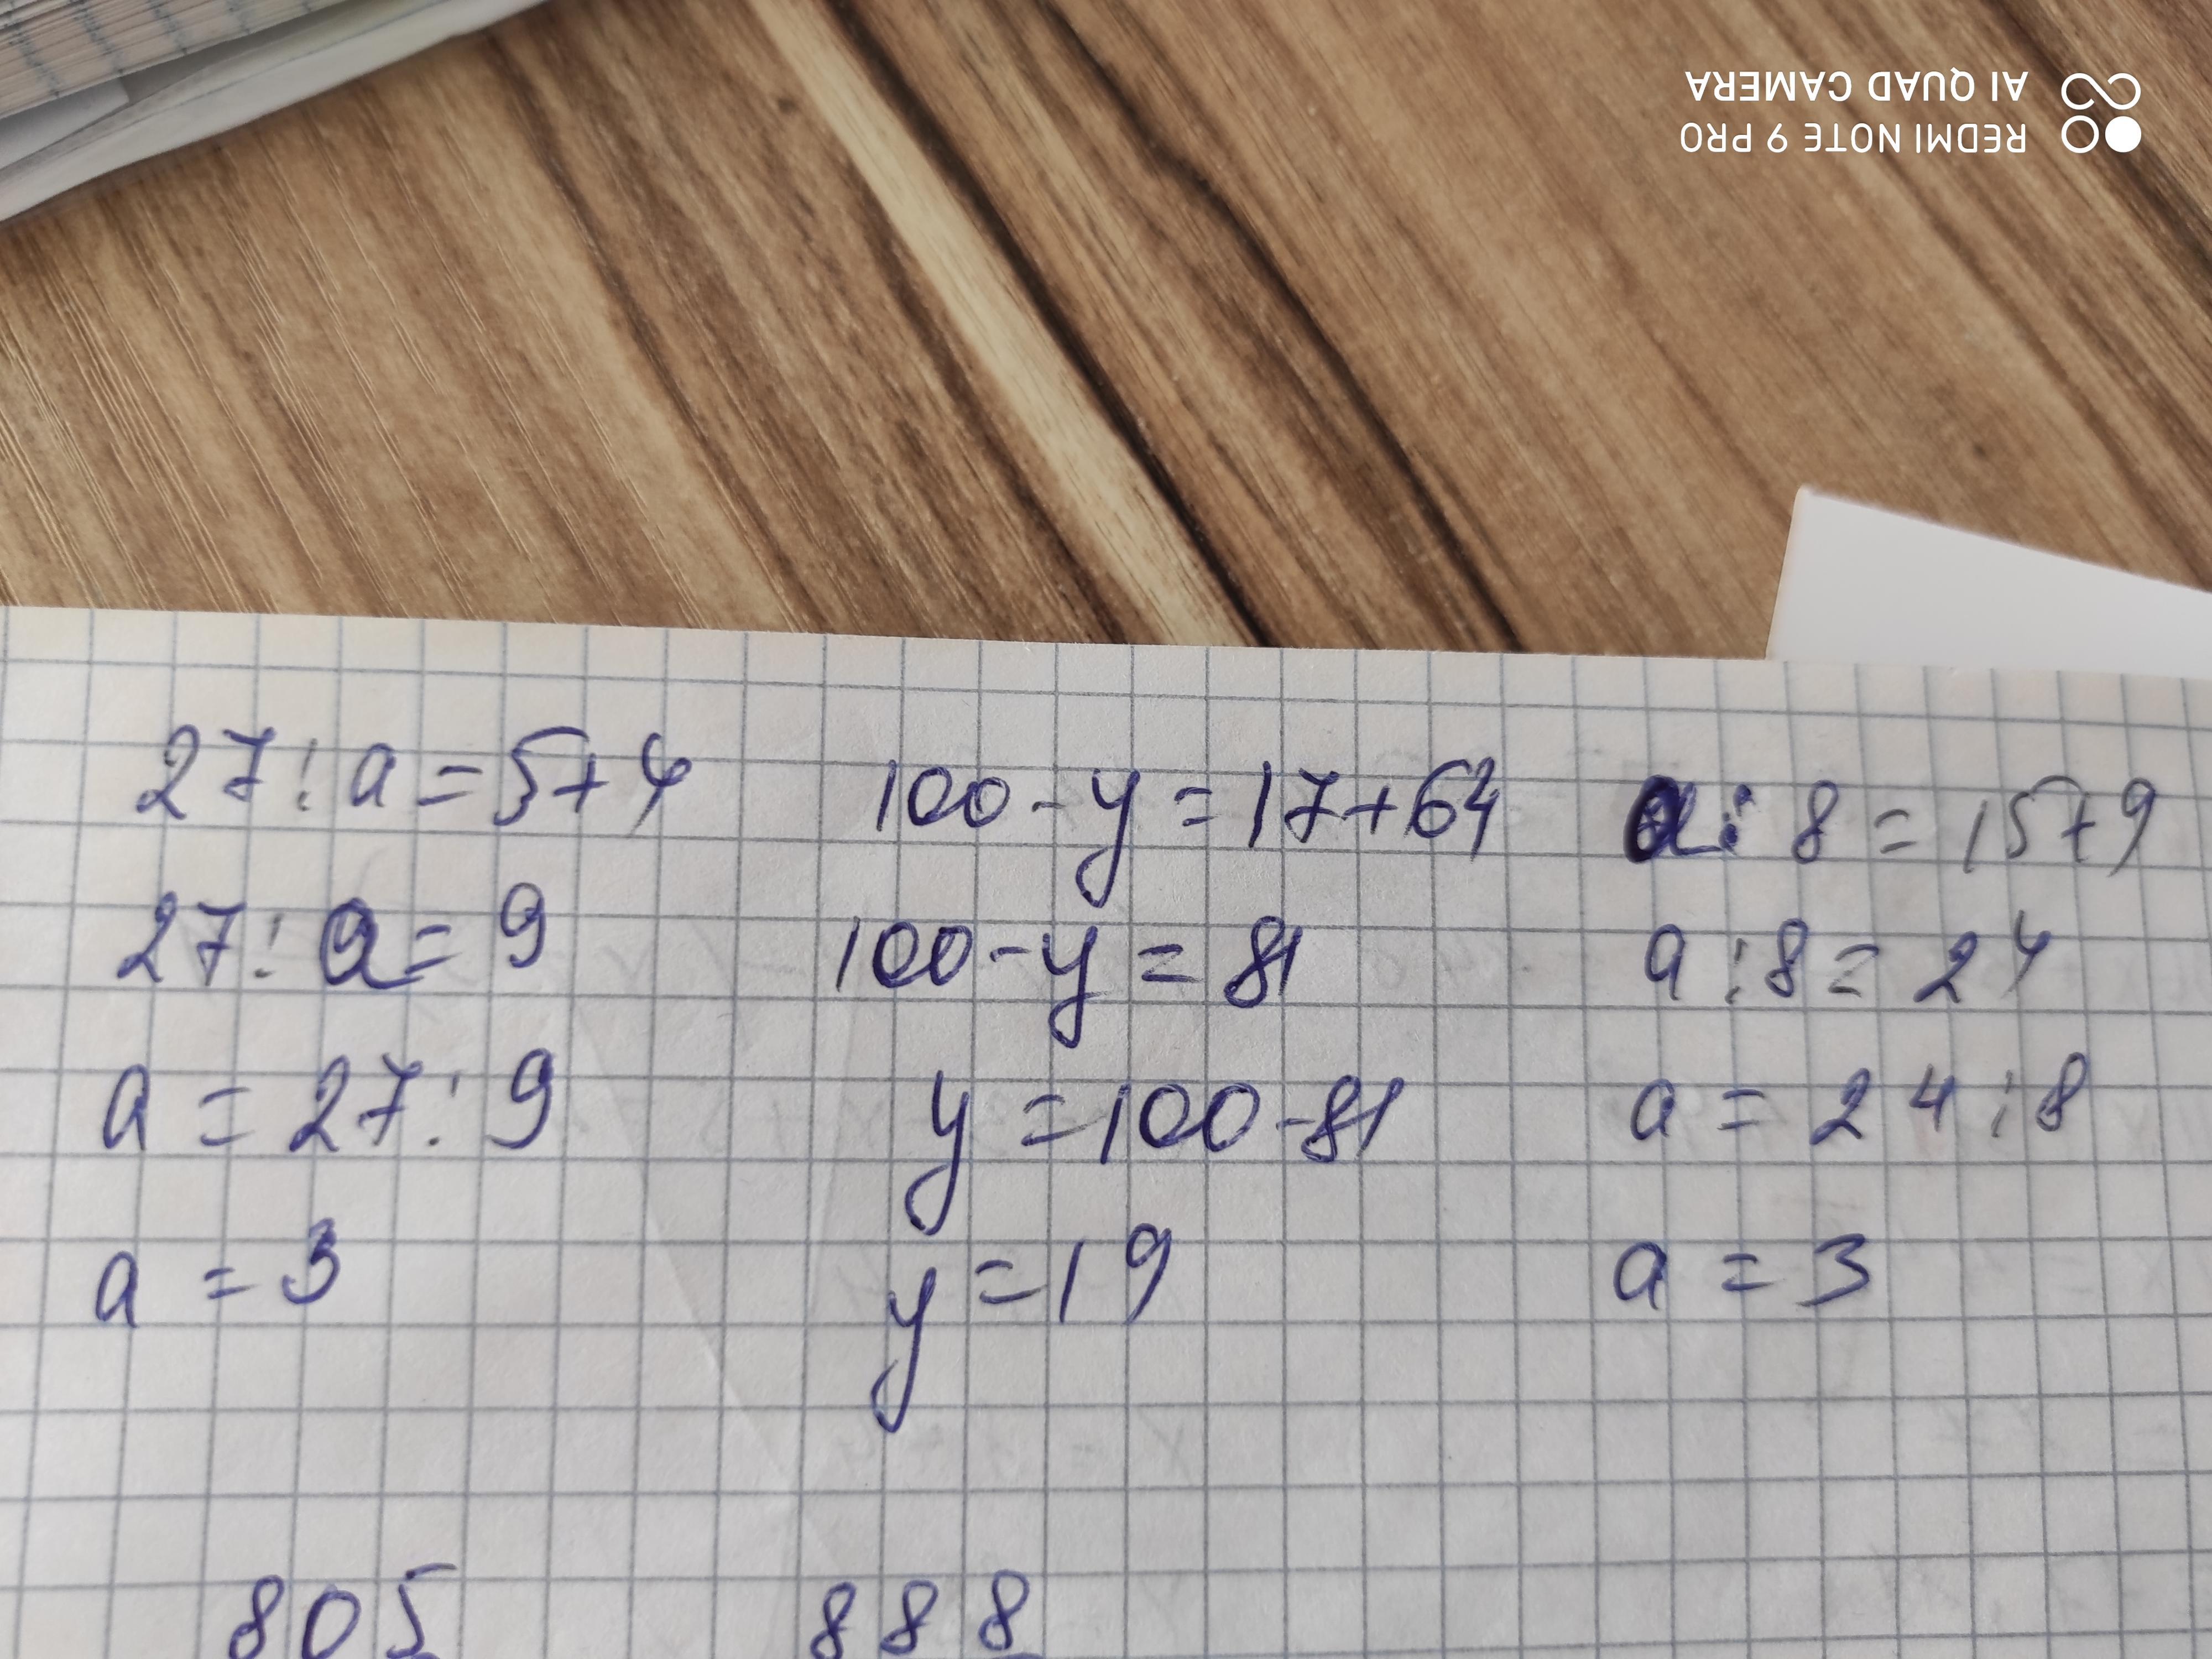 REDMI NOTE 9 PRO
AI QUAD CAMERA
27 : a = 5 + 4
27 : a = 9
a = 27 : 9
a = 3
100 - y = 17 + 64
100 - y = 81
y = 100 - 81
y = 19
a : 8 = 15 + 9
a : 8 = 24
a = 24 : 8
a = 3
805
888